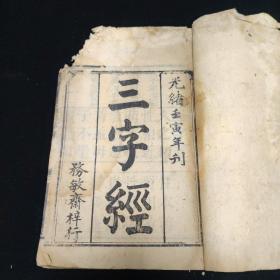 光緒壬寅年刊
三字經
務敏齋梓行